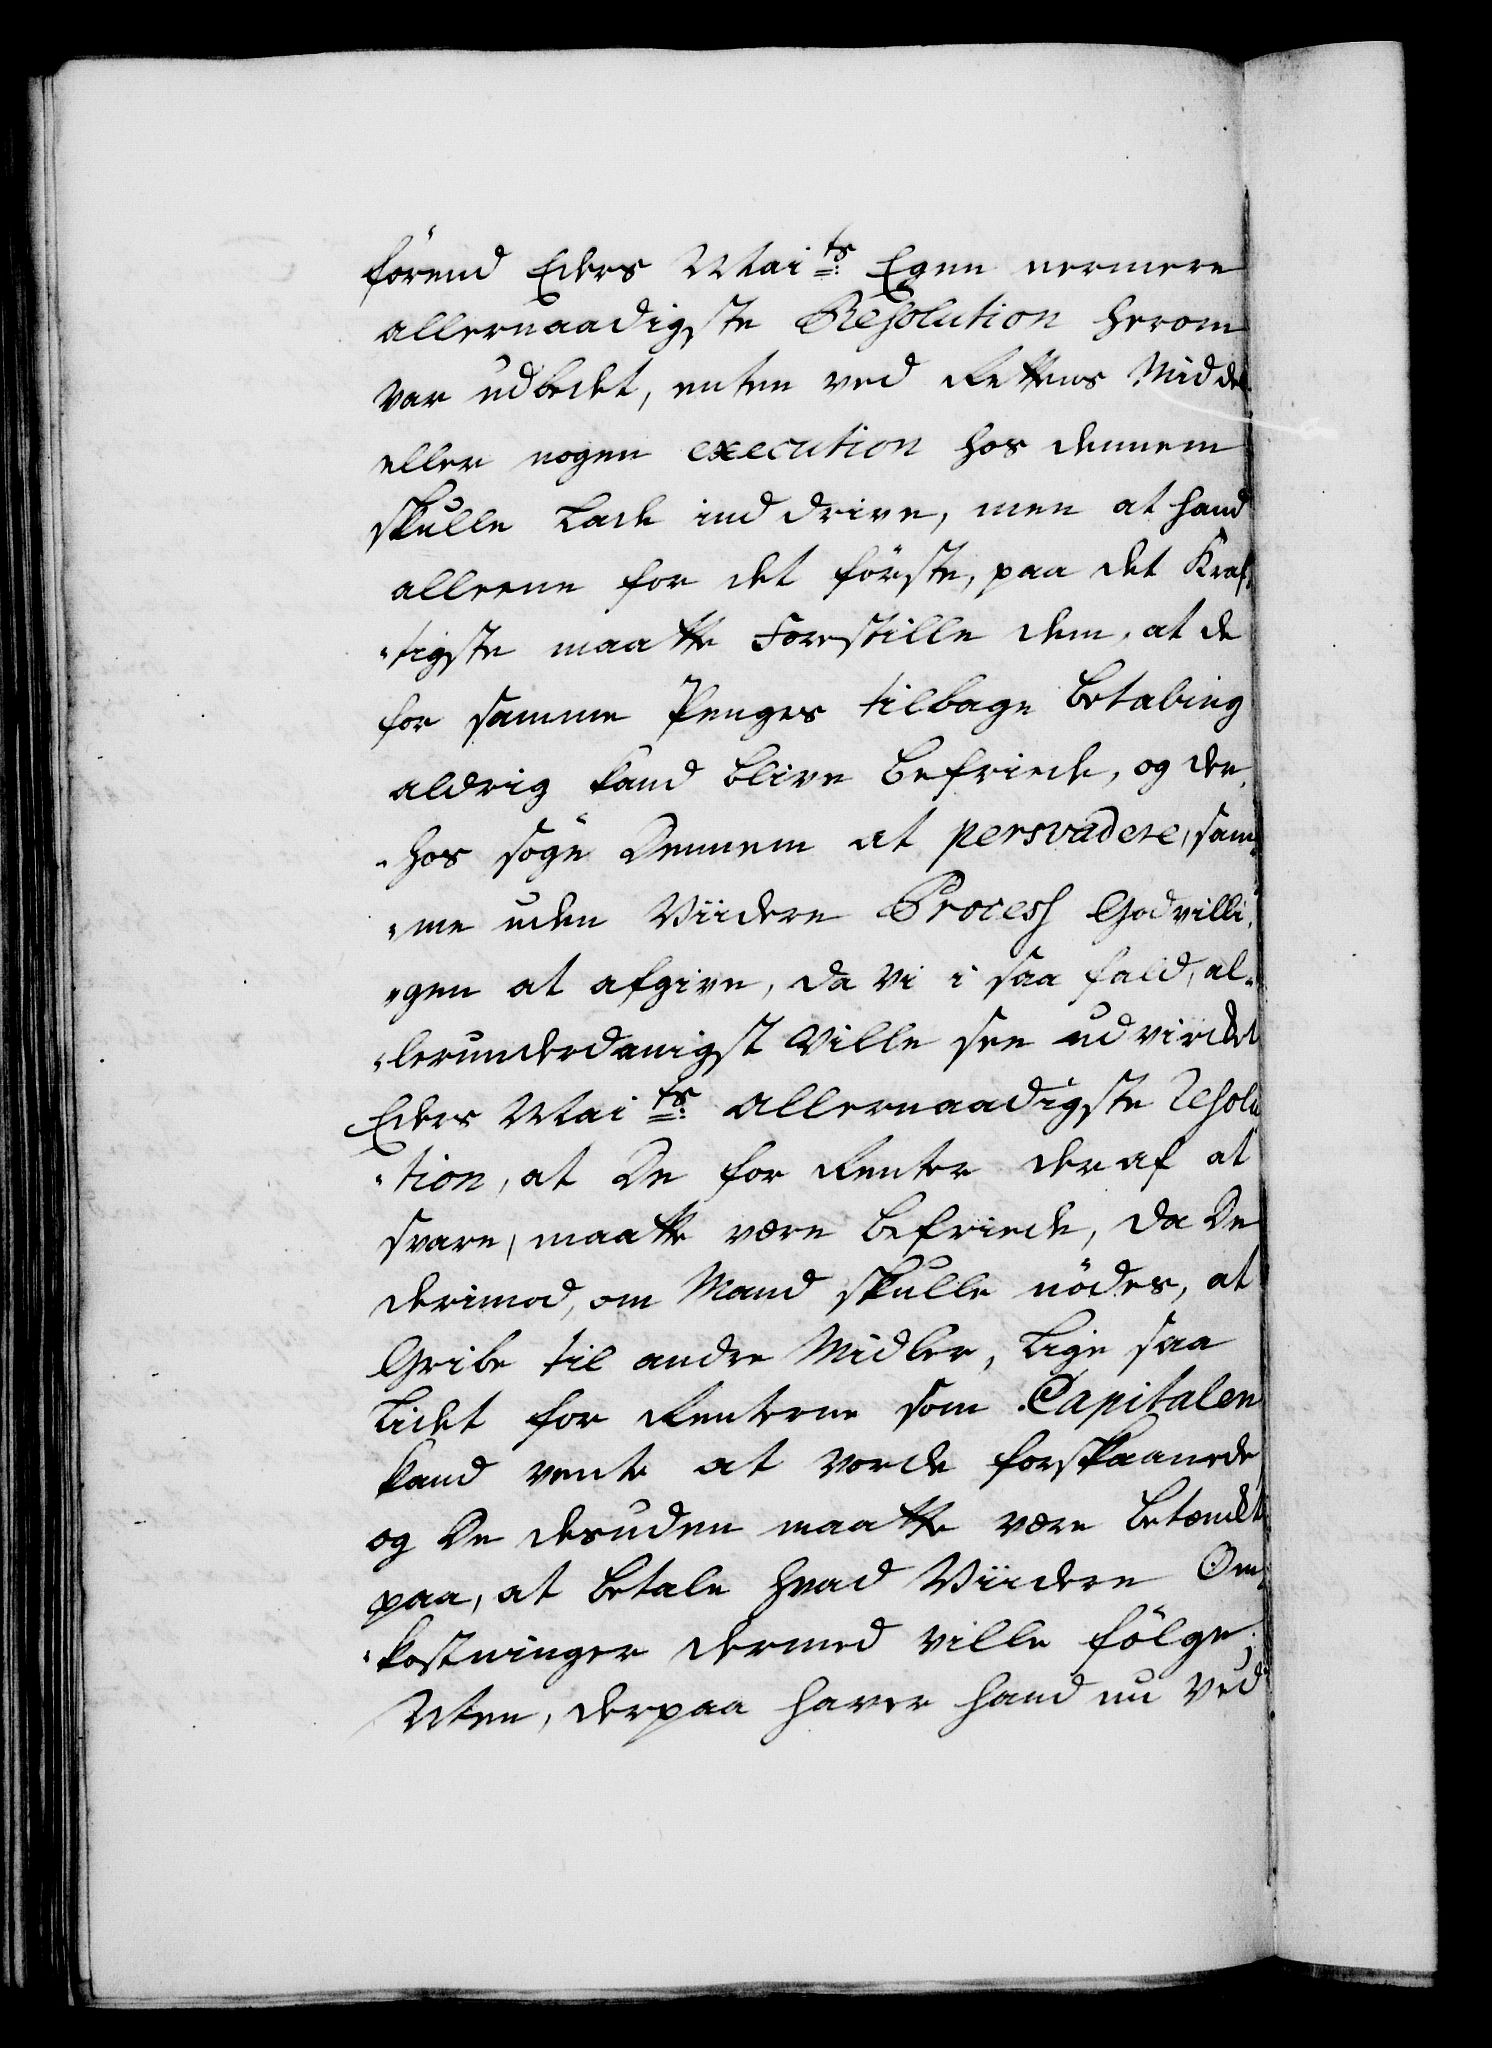 förend Eders Mai<sup>ts</sup>: Egen nermere
allernaadigste Resolution herom
var udbedet, enten ved Rettens Middel
eller nogen execution hos dennem
skulle Lade inddrive, men at hand
alleene for det förste, paa det Kraf,
„tigste maatte Forestille dem, at de
for samme Penges tilbage betaling
aldrig kand blive befriede, og der,
„hos söge Dennem at persvadere, sam„
„me uden Viidere Process Godvilli,
„gen at afgive, da vi i saa fald, al„
„lerunderdanigst Ville see udvirket
Eders Mai<sup>ts</sup>: allernaadigste Resolu
„tion, at De for Renter deraf at
svare, maatte være befriede, da De
derimod, om Mand skulle nödes, at
Gribe til andre Midler, Lige saa
Lidet for Renterne som Capitalen
kand vente at vorde forskaanede
og De desuden maatte være betænckt
paa, at betale hvad Viidere Om„
„kostninger dermed ville fölge.
Men, derpaa haver hand nu Ved